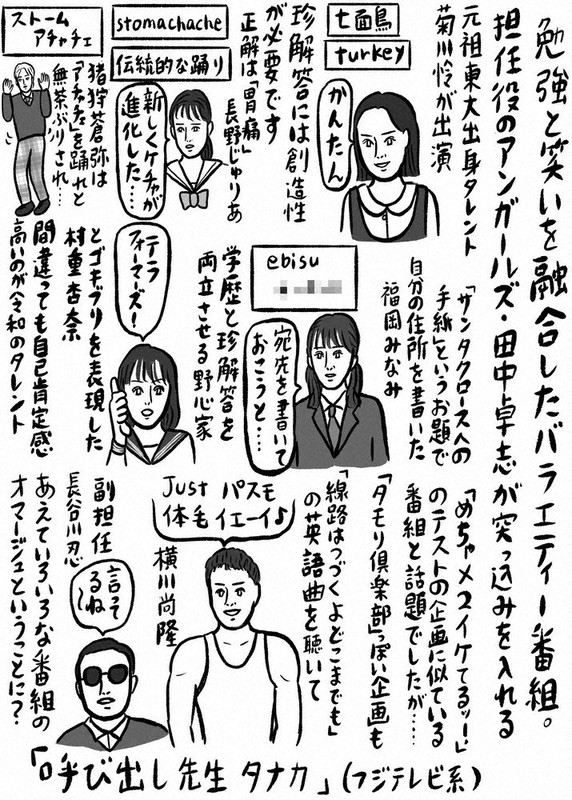 勉強と笑いを融合したバラエティー番組。
担任役のアンガールズ・田中卓志が突っ込みを入れる
元祖東大出身タレント
菊川怜が出演
七面鳥
turkey
かんたん
珍解答には創造性
が必要です
正解は「胃痛」
長野じゅりあ
stomachache
伝統的な踊り
新しくケチャが
進化した…
ストーム
アチャチェ
猪狩蒼弥は
「アチャチェ」を踊れと
無茶ぶりされ…
「サンタクロースへの
手紙」というお題で
自分の住所を書いた
福岡みなみ
ebisu
宛先を書いて
おこうと…
学歴と珍解答を
両立させる野心家
テラ
フォーマーズ!
とゴキブリを表現した
村重杏奈
間違っても自己肯定感
高いのが令和のタレント
「めちゃ×2イケてるッ!」
のテストの企画に似ている
番組と話題でしたが…
「タモリ倶楽部」っぽい企画も
「線路はつづくよどこまでも」
の英語曲を聴いて
Just パスモ
体毛 イエーイ♪
横川尚隆
副担任
長谷川忍
言ってるね〜
あえていろいろな番組の
オマージュということに?
「呼び出し先生 タナカ」(フジテレビ系)